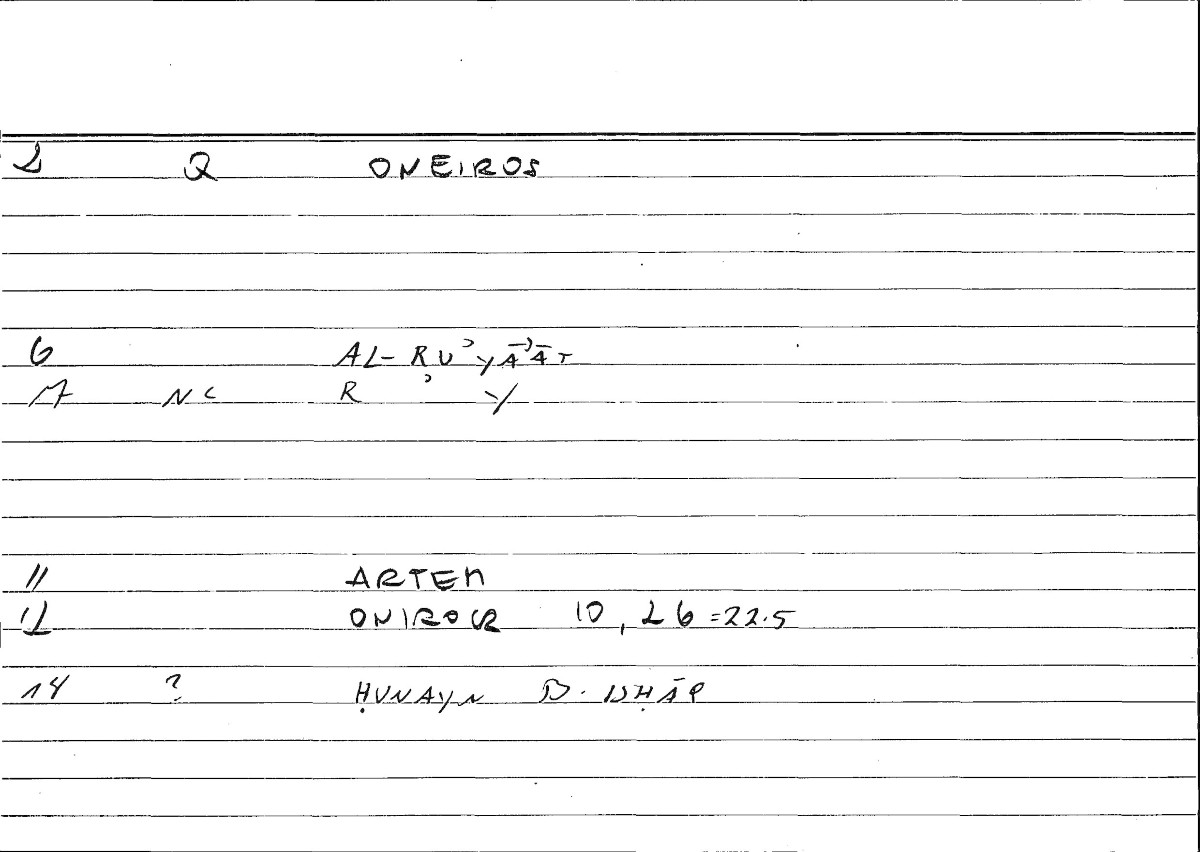 2 Q ONEIROS
6 AL-RUʾYĀʾĀT
17 NC R ʾ Y
11 ARTEM
12 ONIROCR 10, 26=22.5
14 ? ḤUNAYN B.